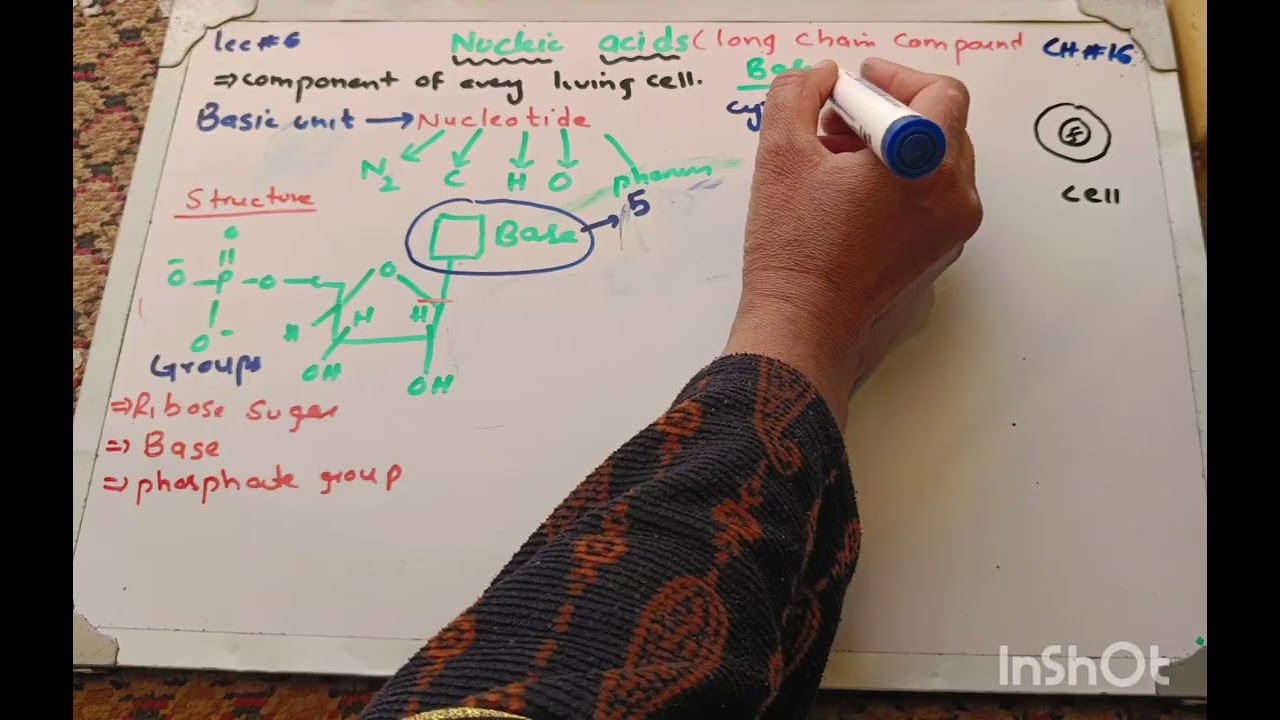 lec#6
Nucleic acids (long chain compound
CH#16
⇒ component of every living cell.
Basic unit → Nucleotide
N2 C H O
Structure
Base → 5
O P O C O
O
H H H
OH OH
Groups
⇒ Ribose sugar
⇒ Base
⇒ phosphate group
cell
InShOt